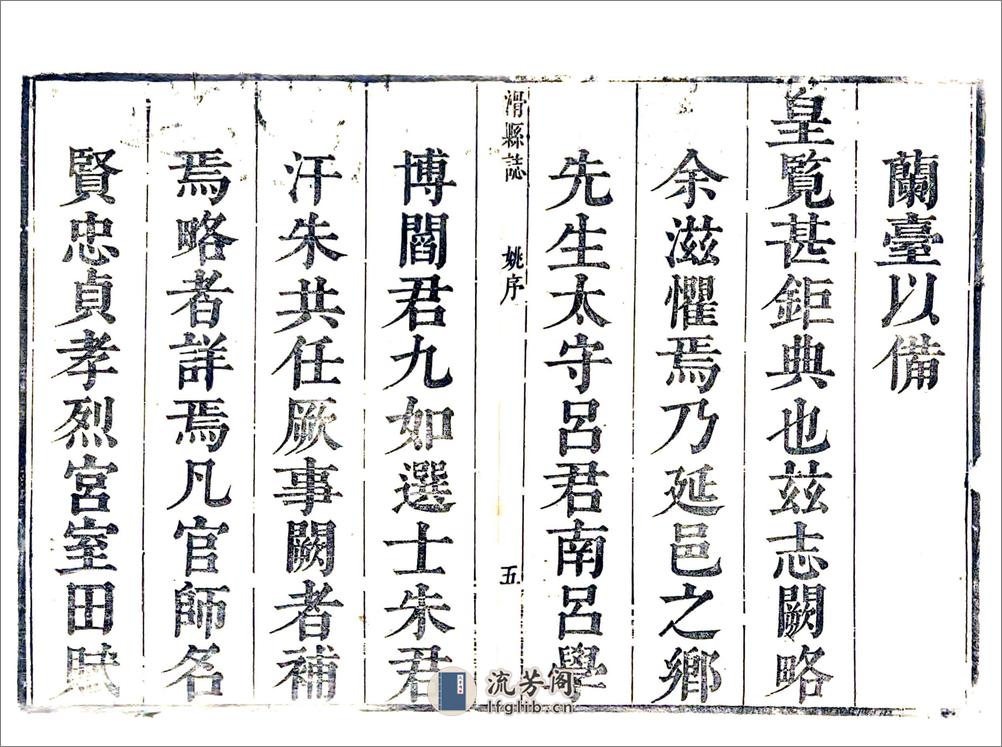 蘭臺以備
皇覧甚鉅典也兹志闕略
余滋懼焉乃延邑之鄉
先生太守呂君南呂學
滑縣誌 姚序 五
博閻君九如選士朱君
汗朱共任厥事闕者補
焉略者詳焉凡官師名
賢忠貞孝烈宮室田賦
流芳阁
lfglib.cn